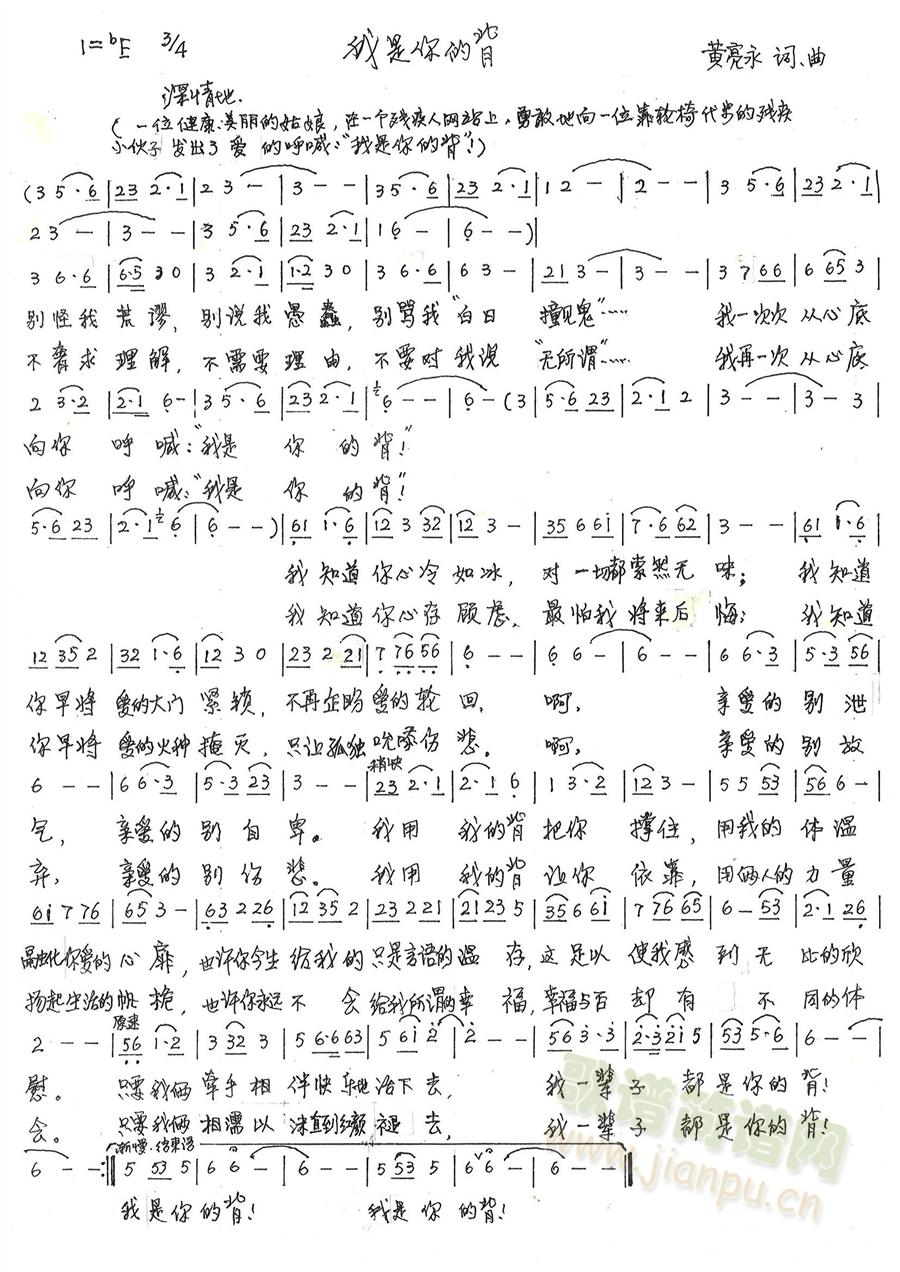 1=ᵇE 3/4 我是你的背 黄亮永 词、曲
深情地.
(一位健康、美丽的姑娘,在一个残疾人网站上,勇敢地向一位靠轮椅代步的残疾
小伙子发出了爱的呼喊:"我是你的背"!)
(3 5·6 | 23 2·1 | 2 3 — | 3 — — | 35·6 | 23 2·1 | 1 2 — | 2 — — | 3 5·6 | 23 2·1 |
2 3 — | 3 — — | 3 5·6 | 23 2·1 | 1 6 — | 6 — —) |
3 6·6 | 6·5 3 0 | 3 2·1 | 1·2 3 0 | 3 6·6 | 6 3 — | 21 3 — | 3 — — | 3 7 66 | 6 65 3 |
别怪我 荒谬, 别说我 愚蠢, 别骂我"白日 撞见鬼"…… 我一次次从心底
不奢求 理解, 不需要 理由, 不要对我说 "无所谓"…… 我再一次从心底
2 3·2 | 2·1 6 — | 3 5·6 | 23 2·1 | 6 — — | 6 — — (3 | 5·6 23 | 2·1 2 | 3 — — | 3 — 3 |
向你 呼喊:"我是 你的背!"
向你 呼喊:"我是 你的背"!
5·6 23 | 2·1 6 | 6 — —) | 61 1·6 | 12 3 32 | 12 3 — | 35 6 6i | 7·6 62 | 3 — — | 61 1·6 |
我知道你心冷如冰, 对一切都索然无味; 我知道
我知道你心存顾虑, 最怕我将来后悔; 我知道
12 35 2 | 32 1·6 | 12 3 0 | 23 2 21 | 7 76 56 | 6 — — | 6 6 — | 6 — — | 6 6·3 | 5·3 56 |
你早将 爱的大门 紧锁, 不再企盼爱的轮回, 啊, 亲爱的别泄
你早将 爱的火种 掩灭, 只让孤独吮啄伤悲。 啊, 亲爱的别放
稍快
6 — — | 6 6·3 | 5·3 23 | 3 — — | 23 2·1 | 2·1 6 | 1 3·2 | 12 3 — | 5 5 53 | 56 6 — |
气, 亲爱的别自卑。 我用 我的背把你 撑住, 用我的体温
弃, 亲爱的别伤悲。 我用 我的背让你 依靠, 用俩人的力量
6i 7 76 | 65 3 — | 63 2 26 | 12 35 2 | 23 2 21 | 21 23 5 | 35 6 6i | 7 76 65 | 6 — 53 | 2·1 26 |
融化你爱的心扉, 也许你今生给我的只是言语的温存,这足以使我感到无比的欣
扬起生活的帆桅, 也许你永远不会给我所谓的幸福,幸福与否却有不同的体
原速
2 — — | 56 1·2 | 3 32 3 | 5 6·6 63 | 5 6i 2 | 2 — — | 56 3·3 | 2·3 2i 5 | 53 5·6 | 6 — — |
慰。 只要我俩牵手相伴快乐地活下去, 我一辈子都是你的背!
会。 只要我俩相濡以沫直到红颜褪去, 我一辈子都是你的背!
渐慢·结束语
6 — — :‖ 5 53 5 | 6 6 — | 6 — — | 5 53 5 | 6ᵛ6 — | 6 — — ‖
我是你的背! 我是你的背!
歌谱简谱网
www.jianpu.cn